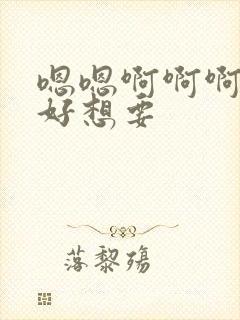 嗯嗯啊啊啊
好想要
落黎殇